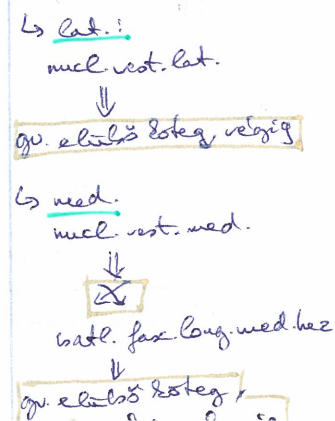 ↳ lat.:
nucl. vest. lat.
⇓
gv. elülső köteg végig
↳ med.
nucl. vest. med.
⇓
csatl. fasc. long. med. hez
↓
gv. elülső köteg,